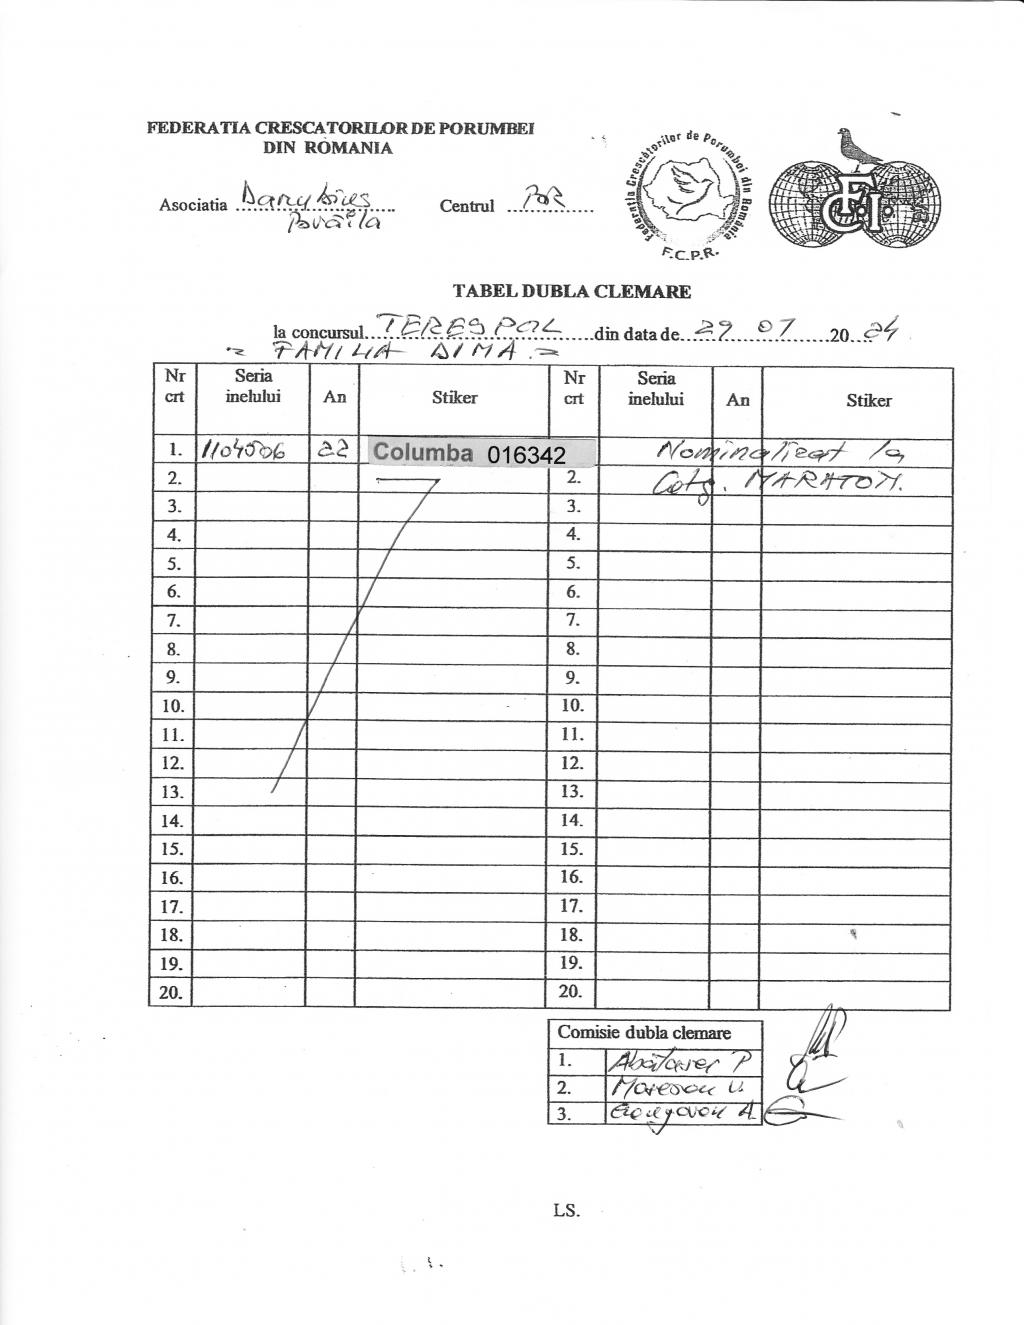 FEDERATIA CRESCATORILOR DE PORUMBEI
DIN ROMANIA
Asociatia Danubius Centrul BR
Brăila
Federatia Crescătorilor de Porumbei din România
F.C.P.R.
F.C.I.
TABEL DUBLA CLEMARE
la concursul TERESPOL din data de 29 07 2024
FAMILIA DIMA
Nr crt Seria inelului An Stiker Nr crt Seria inelului An Stiker
1. 1104506 22 Columba 016342 Nominalizat la
2. 2. Catg. MARATON.
3. 3.
4. 4.
5. 5.
6. 6.
7. 7.
8. 8.
9. 9.
10. 10.
11. 11.
12. 12.
13. 13.
14. 14.
15. 15.
16. 16.
17. 17.
18. 18.
19. 19.
20. 20.
Comisie dubla clemare
1. P
2. U.
3. A.
LS.